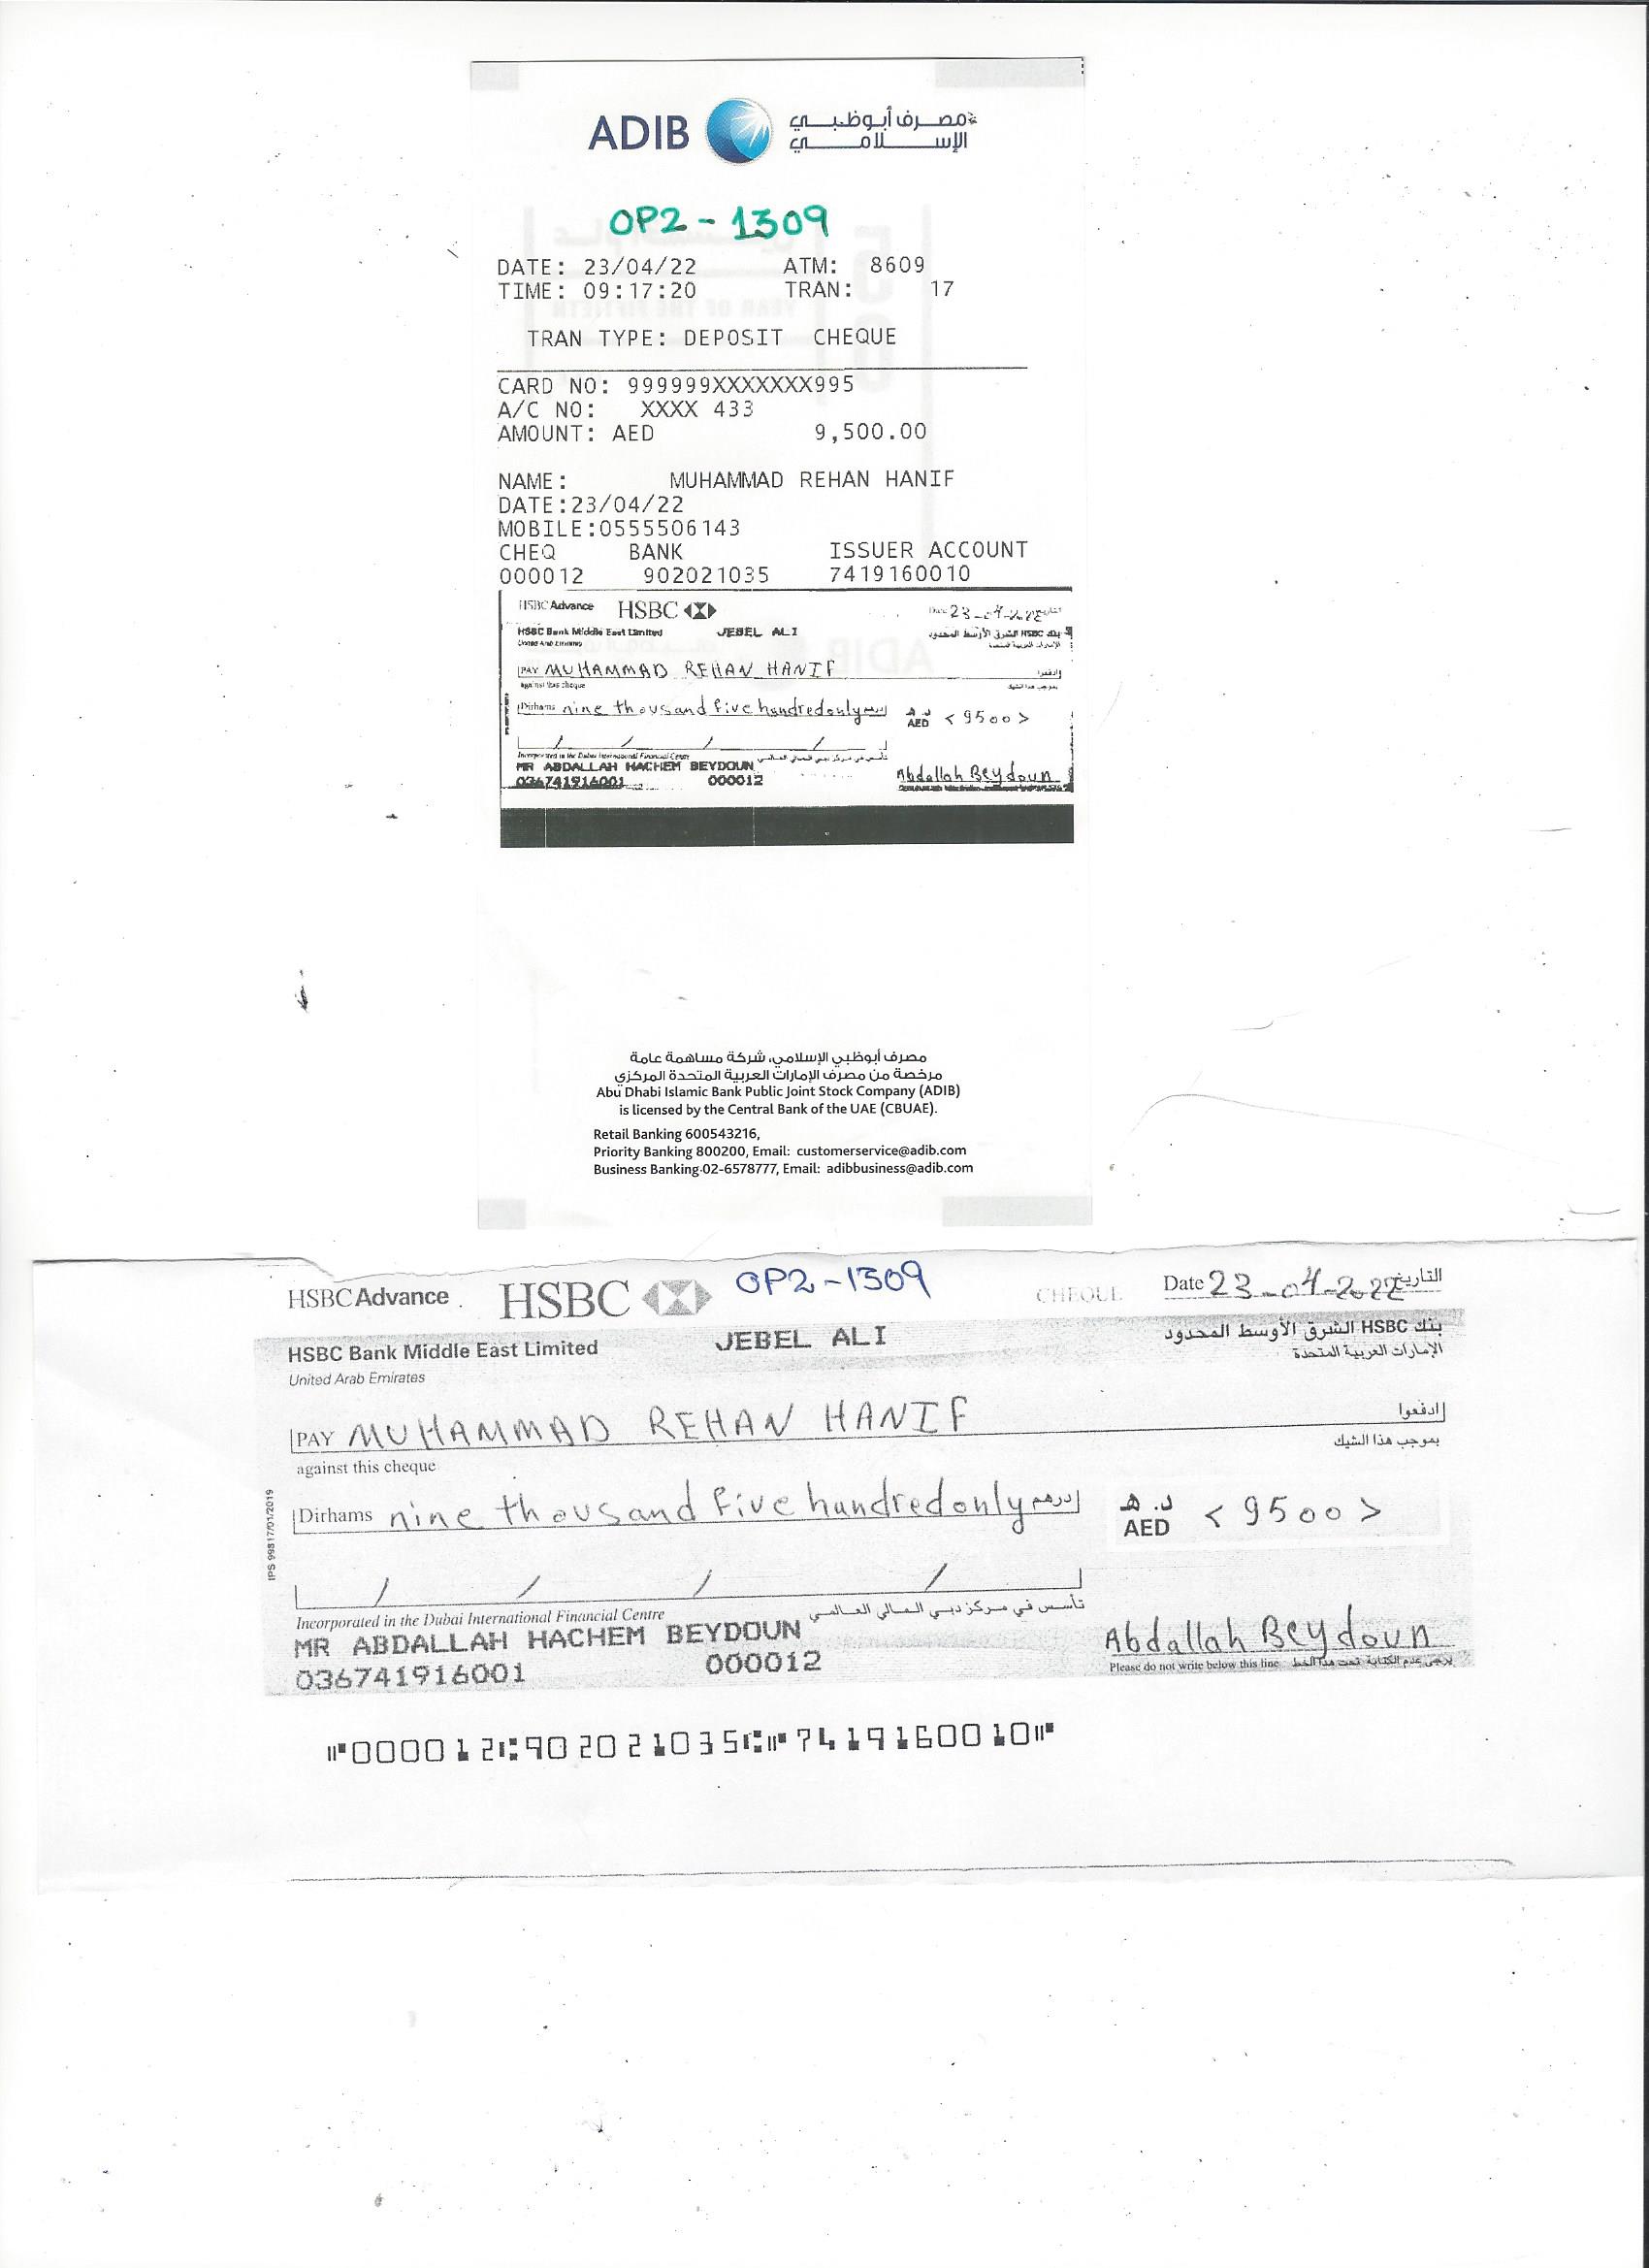 ADIB مصرف أبوظبي
الإسلامي
OP2 - 1309
DATE: 23/04/22 ATM: 8609
TIME: 09:17:20 TRAN: 17
TRAN TYPE: DEPOSIT CHEQUE
CARD NO: 999999XXXXXXX995
A/C NO: XXXX 433
AMOUNT: AED 9,500.00
NAME: MUHAMMAD REHAN HANIF
DATE:23/04/22
MOBILE:0555506143
CHEQ BANK ISSUER ACCOUNT
000012 902021035 7419160010
HSBC Advance HSBC Date 23-04-2022 التاريخ
HSBC Bank Middle East Limited JEBEL ALI بنك HSBC الشرق الأوسط المحدود
United Arab Emirates الإمارات العربية المتحدة
PAY MUHAMMAD REHAN HANIF ادفعوا
against this cheque بموجب هذا الشيك
Dirhams nine thousand five hundred only درهم د.هـ AED < 9500 >
Incorporated in the Dubai International Financial Centre تأسس في مركز دبي المالي العالمي
MR ABDALLAH HACHEM BEYDOUN Abdallah Beydoun
036741916001 000012
مصرف أبوظبي الإسلامي، شركة مساهمة عامة
مرخصة من مصرف الإمارات العربية المتحدة المركزي
Abu Dhabi Islamic Bank Public Joint Stock Company (ADIB)
is licensed by the Central Bank of the UAE (CBUAE).
Retail Banking 600543216,
Priority Banking 800200, Email: customerservice@adib.com
Business Banking 02-6578777, Email: adibbusiness@adib.com
HSBC Advance HSBC OP2-1309 CHEQUE Date 23-04-2022 التاريخ
HSBC Bank Middle East Limited JEBEL ALI بنك HSBC الشرق الأوسط المحدود
United Arab Emirates الإمارات العربية المتحدة
PAY MUHAMMAD REHAN HANIF ادفعوا
against this cheque بموجب هذا الشيك
IPS 99817/01/2019
Dirhams nine thousand five hundred only درهم د.هـ AED < 9500 >
Incorporated in the Dubai International Financial Centre تأسس في مركز دبي المالي العالمي
MR ABDALLAH HACHEM BEYDOUN Abdallah Beydoun
036741916001 000012 Please do not write below this line يرجى عدم الكتابة تحت هذا الخط
⑈000012⑆902021035⑆⑈7419160010⑈